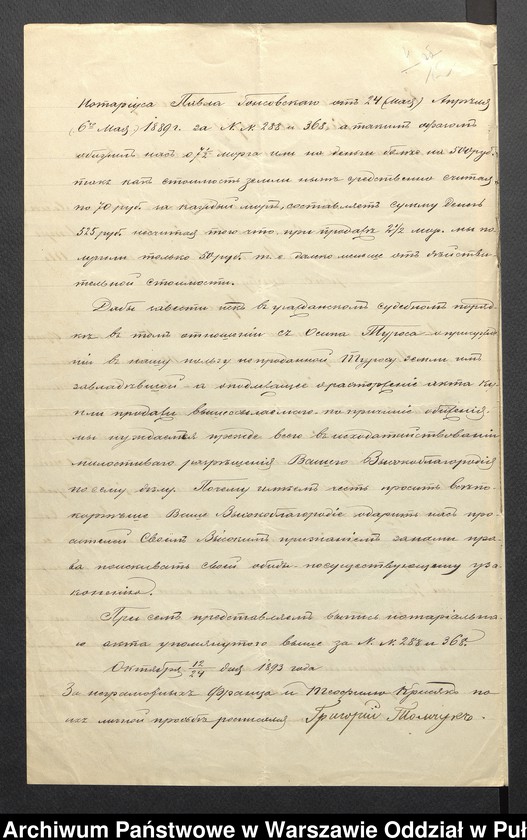 Нотаріуса Павла Гоисовскаго отъ 24 (Мая) Апрѣля
(6го Мая) 1889 г. за N. N. 288 и 368. а такимъ образомъ
обидилъ насъ о 7½ морга или на деньги болѣе на 500 руб.
такъ какъ стоимость земли нынѣ средственно считая
по 70 руб. за каждый моргъ, составляетъ сумму денегъ
525 руб. несчитая того что при продажѣ 2½ мор. мы по-
лучили только 50 руб. т. е. далеко меньше отъ дѣйстви-
тельной стоимости.
Дабы завести искъ въ гражданскомъ судебномъ поряд-
кѣ въ томъ отношеніи съ Осипа Туроса о присужде-
ніи въ нашу пользу непроданной Туросу земли имъ
завладѣвшой а о расторженіе акта ку-
пли продажи вышесказаннаго по причинѣ обиженія
мы нуждаемся прежде всего въ исходатайствованіи
милостиваго разрѣшенія Вашего Высокоблагородія
по сему дѣлу. Почему имѣемъ честь просить всепо-
корнѣйше Ваше Высокоблагородіе одарить насъ про-
сителей Своимъ Высокимъ признаніемъ за нами пра-
ва поискивать своей обиды по существующему уза-
коненію.
При семъ представляемъ выпись нотаріальна-
го акта упомянутого выше за N. N. 288 и 368.
Октября 12/24 дня 1893 года
За неграмотныхъ Франца и Теофилю по
ихъ личной просьбѣ росписался Григорій Томчукъ.
Archiwum Państwowe w Warszawie Oddział w Puł